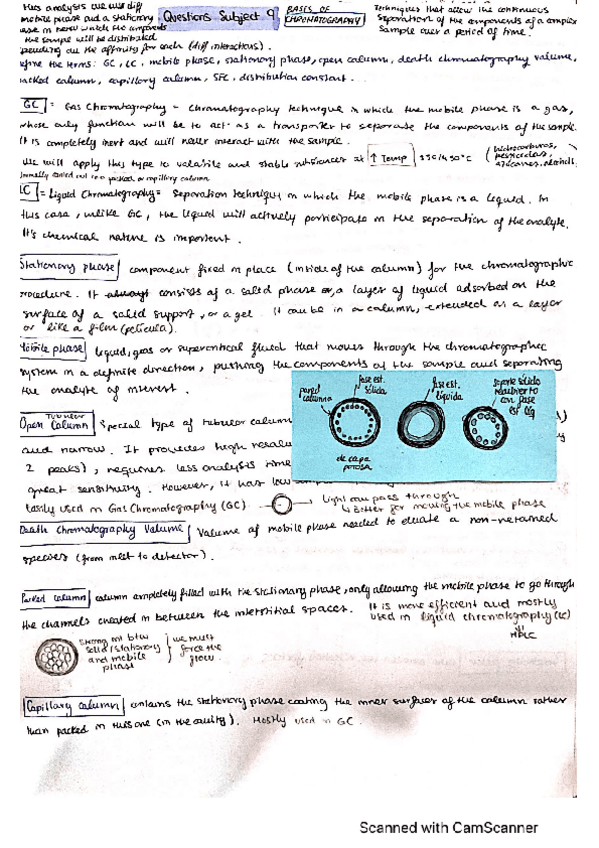 this analysis we use diff
mobile phase and a stationary
phase in between which the components
the sample will be distributed
depending on the affinity for each (diff interactions).
Questions Subject 9
BASIS OF
CHROMATOGRAPHY
Techniques that allow the continuous
separation of the components of a complex
sample over a period of time.
Define the terms: GC, LC, mobile phase, stationary phase, open column, death chromatography volume,
packed column, capillary column, SFC, distribution constant.
GC = Gas Chromatography = Chromatography technique in which the mobile phase is a gas,
whose only function will be to act as a transporter to separate the components of the sample.
It is completely inert and will never interact with the sample.
We will apply this type to volatile and stable substances at ↑ Temp
normally carried out in a packed or capillary column
LC = Liquid Chromatography = Separation technique in which the mobile phase is a liquid. In
this case, unlike GC, the liquid will actively participate in the separation of the analyte.
It's chemical nature is important.
Stationary phase component fixed in place (inside of the column) for the chromatographic
procedure. It consists of a solid phase or, a layer of liquid adsorbed on the
surface of a solid support, or a gel. It can be in a column, extended as a layer
or like a film (película).
Mobile phase liquid, gas or supercritical fluid that moves through the chromatographic
system in a definite direction, pushing the components of the sample and separating
the analyte of interest.
pared
columna
fase est.
sólida
de capa
porosa
fase est.
líquida
soporte sólido
recubierto
con fase
est líq
Tubular
Open Column special type of tubular column
and narrow. It provides high
2 peaks), requires less analysis time
great sensitivity. However, it has low
used in Gas Chromatography (GC) → light can pass through
↳ better for moving the mobile phase
Death Chromatography Volume Volume of mobile phase needed to eluate a non-retained
species (from inlet to detector).
Packed column column completely filled with the stationary phase, only allowing the mobile phase to go through
the channels created in between the interstitial spaces. It is more efficient and mostly
used in liquid chromatography (LC)
HPLC
strong int btw
solid/stationary
and mobile
phase
we must
force the
flow.
Capillary column contains the stationary phase coating the inner surface of the column rather
than packed in this one (in the cavity). Mostly used in GC.
Scanned with CamScanner